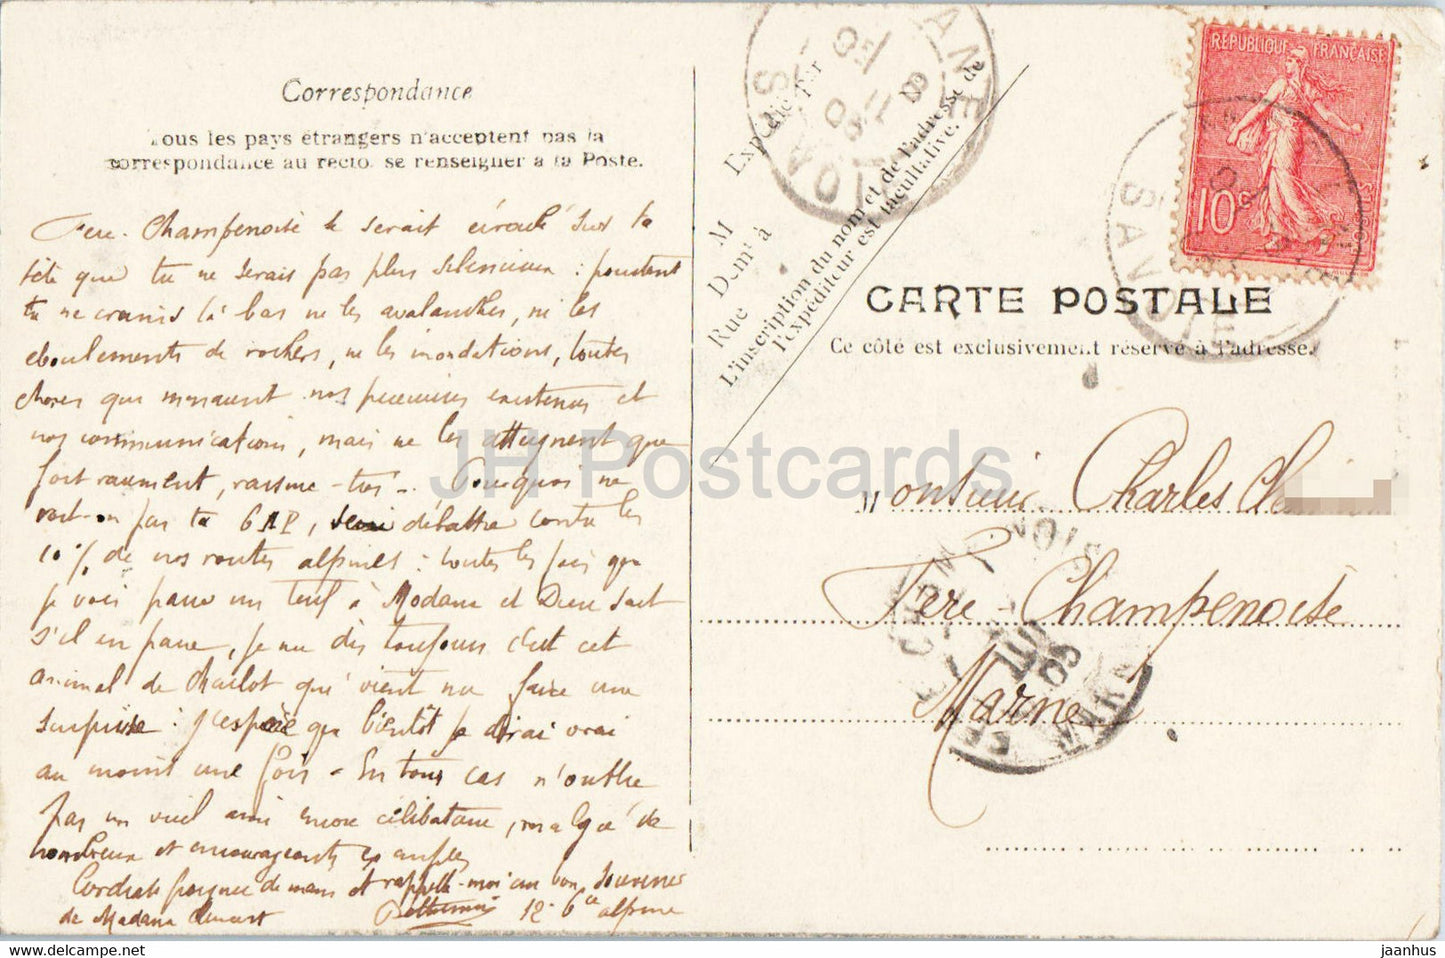 Correspondance
Tous les pays étrangers n'acceptent pas la
correspondance au recto, se renseigner à la Poste.
Fère-Champenoise te serait écroulé sur la
tête que tu ne serais pas plus silencieux : pourtant
tu ne crains là bas ni les avalanches, ni les
éboulements de rochers, ni les inondations, toutes
choses qui menacent nos précieuses existences et
nos communications, mais ne les atteignent que
fort rarement, rassure-toi. Pourquoi ne
vast-on pas ta débattre contre les
10% de nos routes alpines : toutes les fois que
je vois passer un teuf à Modane et Dieu sait
s'il en passe, je me dis toujours c'est cet
animal de Charlot qui vient me faire une
surprise : j'espère que bientôt je dirai vrai
au moins une fois - En tous cas n'oublie
pas un vieil ami encore célibataire, malgré de
nombreux et encourageants exemples
Cordiale poignée de main et rappelle-moi au bon souvenir
de Madame
12e 6ce alpine
Expédiée par
M
Demt à
Rue
L'inscription du nom et de l'adresse de
l'expéditeur est facultative.
REPUBLIQUE FRANÇAISE
10c
POSTES
SAVOIE
SAVOIE
CARTE POSTALE
Ce côté est exclusivement réservé à l'adresse.
Monsieur Charles
Fère-Champenoise
Marne
JH Postcards
hip.com/jaanhus